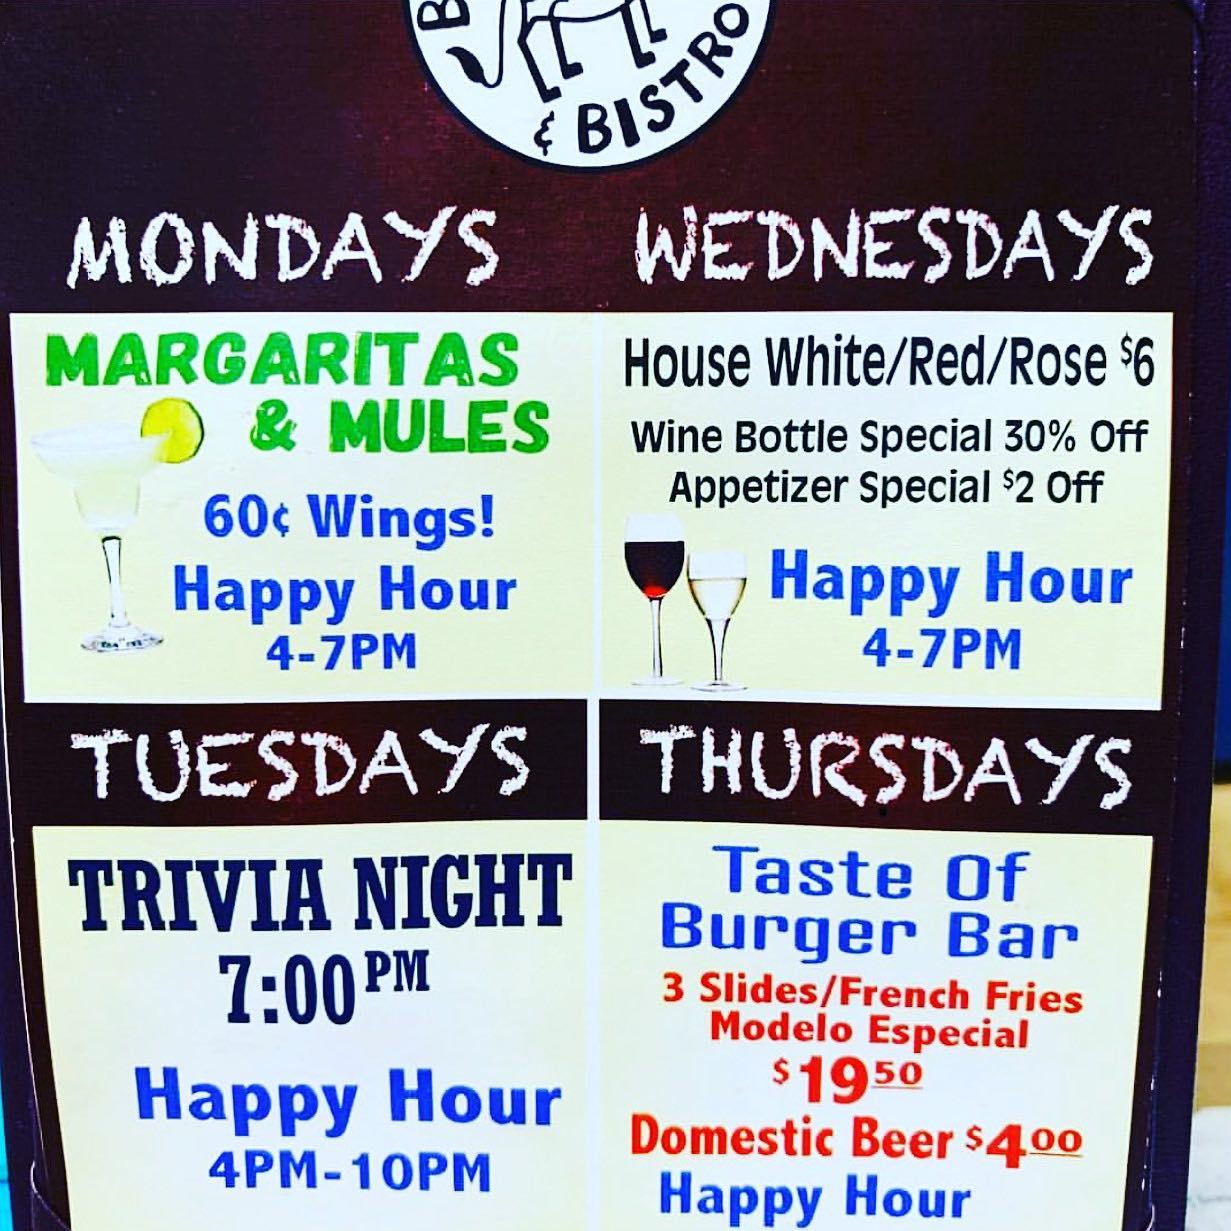 & BISTRO
MONDAYS
MARGARITAS
& MULES
60¢ Wings!
Happy Hour
4-7PM
WEDNESDAYS
House White/Red/Rose $6
Wine Bottle Special 30% Off
Appetizer Special $2 Off
Happy Hour
4-7PM
TUESDAYS
TRIVIA NIGHT
7:00 PM
Happy Hour
4PM-10PM
THURSDAYS
Taste Of
Burger Bar
3 Slides/French Fries
Modelo Especial
$19 50
Domestic Beer $4 00
Happy Hour